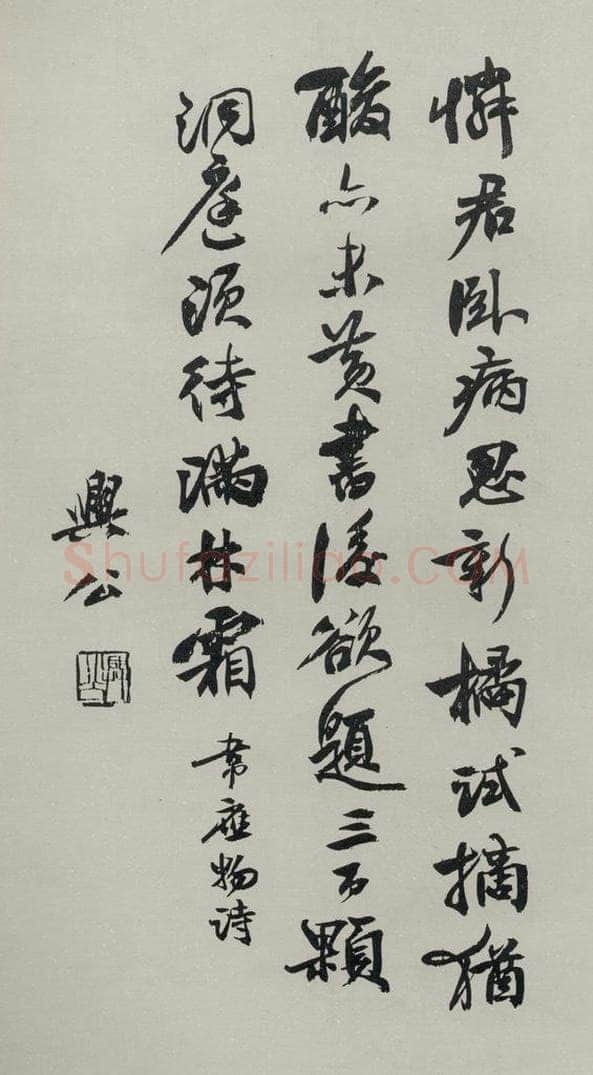 憐君臥病思新橘試摘猶
酸亦未黃書後欲題三百顆
洞庭須待滿林霜
韋應物詩
興公
Shufaziliao.COM